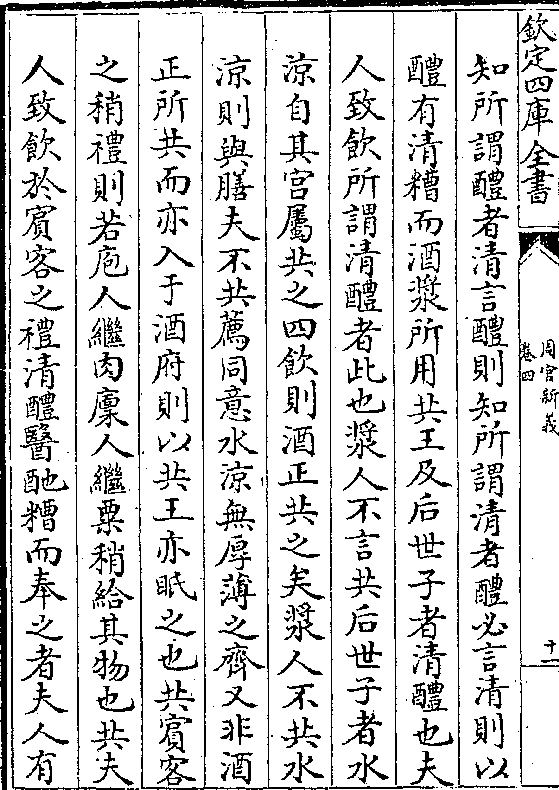 欽定四庫全書
周官新義
卷四
十一
知所謂醴者清言醴則知所謂清者醴必言清則以
醴有清糟而酒漿所用共王及后世子者清醴也夫
人致飲所謂清醴者此也漿人不言共后世子者水
涼自其宫屬共之四飲則酒正共之矣漿人不共水
涼則與膳夫不共薦同意水涼無厚薄之齊又非酒
正所共而亦入于酒府則以共王亦眡之也共賓客
之稍禮則若庖人繼肉廩人繼粟稍給其物也共夫
人致飲於賓客之禮清醴醫酏糟而奉之者夫人有